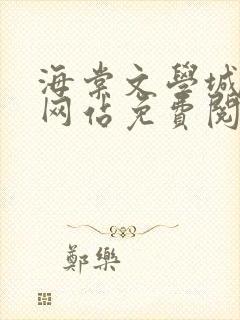 海棠文學城
网佔免費閱
鄭樂